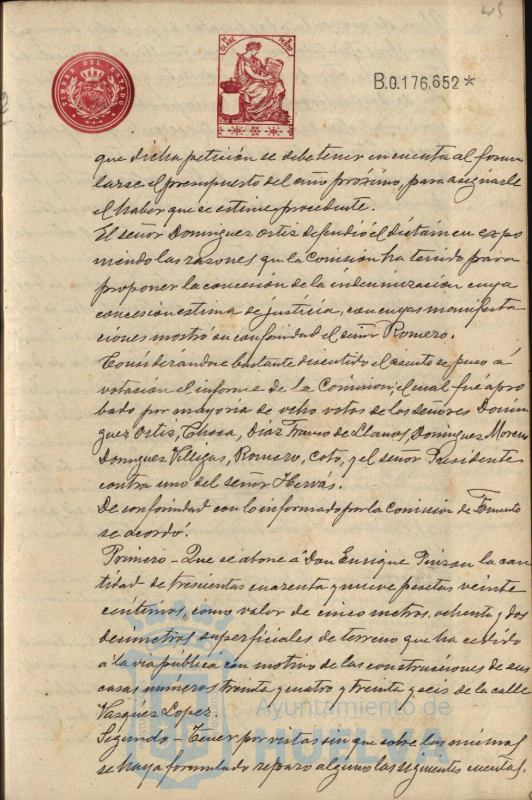 45
TIMBRE DEL ESTADO
CLASE
B.0.176,652*
que dicha petición se debe tener en cuenta al formu
larse el presupuesto del año próximo, para asignarle
el haber que se estime procedente.
El señor Dominguez Ortiz defendió el dictámen expo
niendo las razones que la Comision ha tenido para
proponer la concesión de la indemnización cuya
concesion estima de justicia, con cuyas manifesta
ciones mostró su conformidad el señor Romero.
Considerándose bastante discutido el asunto se puso á
votación el informe de la Comision; el cual fué apro
bado por mayoría de ocho votos de los señores Domin
guez Ortiz, Checa, Díaz Franco de Llanos, Dominguez Moreno
Dominguez Villegas, Romero, Coto, y el señor Presidente
contra uno del señor Hervás.
De conformidad con lo informado por la Comision de Fomento
se acordó.
Primero - Que se abone á Don Enrique Pinzon la can
tidad de trescientas cuarenta y nueve pesetas veinte
centimos, como valor de cinco metros, ochenta y dos
decimetros superficiales de terreno que ha cedido
á la vía pública con motivo de las construcciones de sus
casas números treinta y cuatro y treinta y seis de la calle
Vazquez Lopez.
Segundo - Tener por vistas sin que sobre las mismas
se haya formulado reparo alguno las siguientes cuentas.
Ayuntamiento de
HUELVA